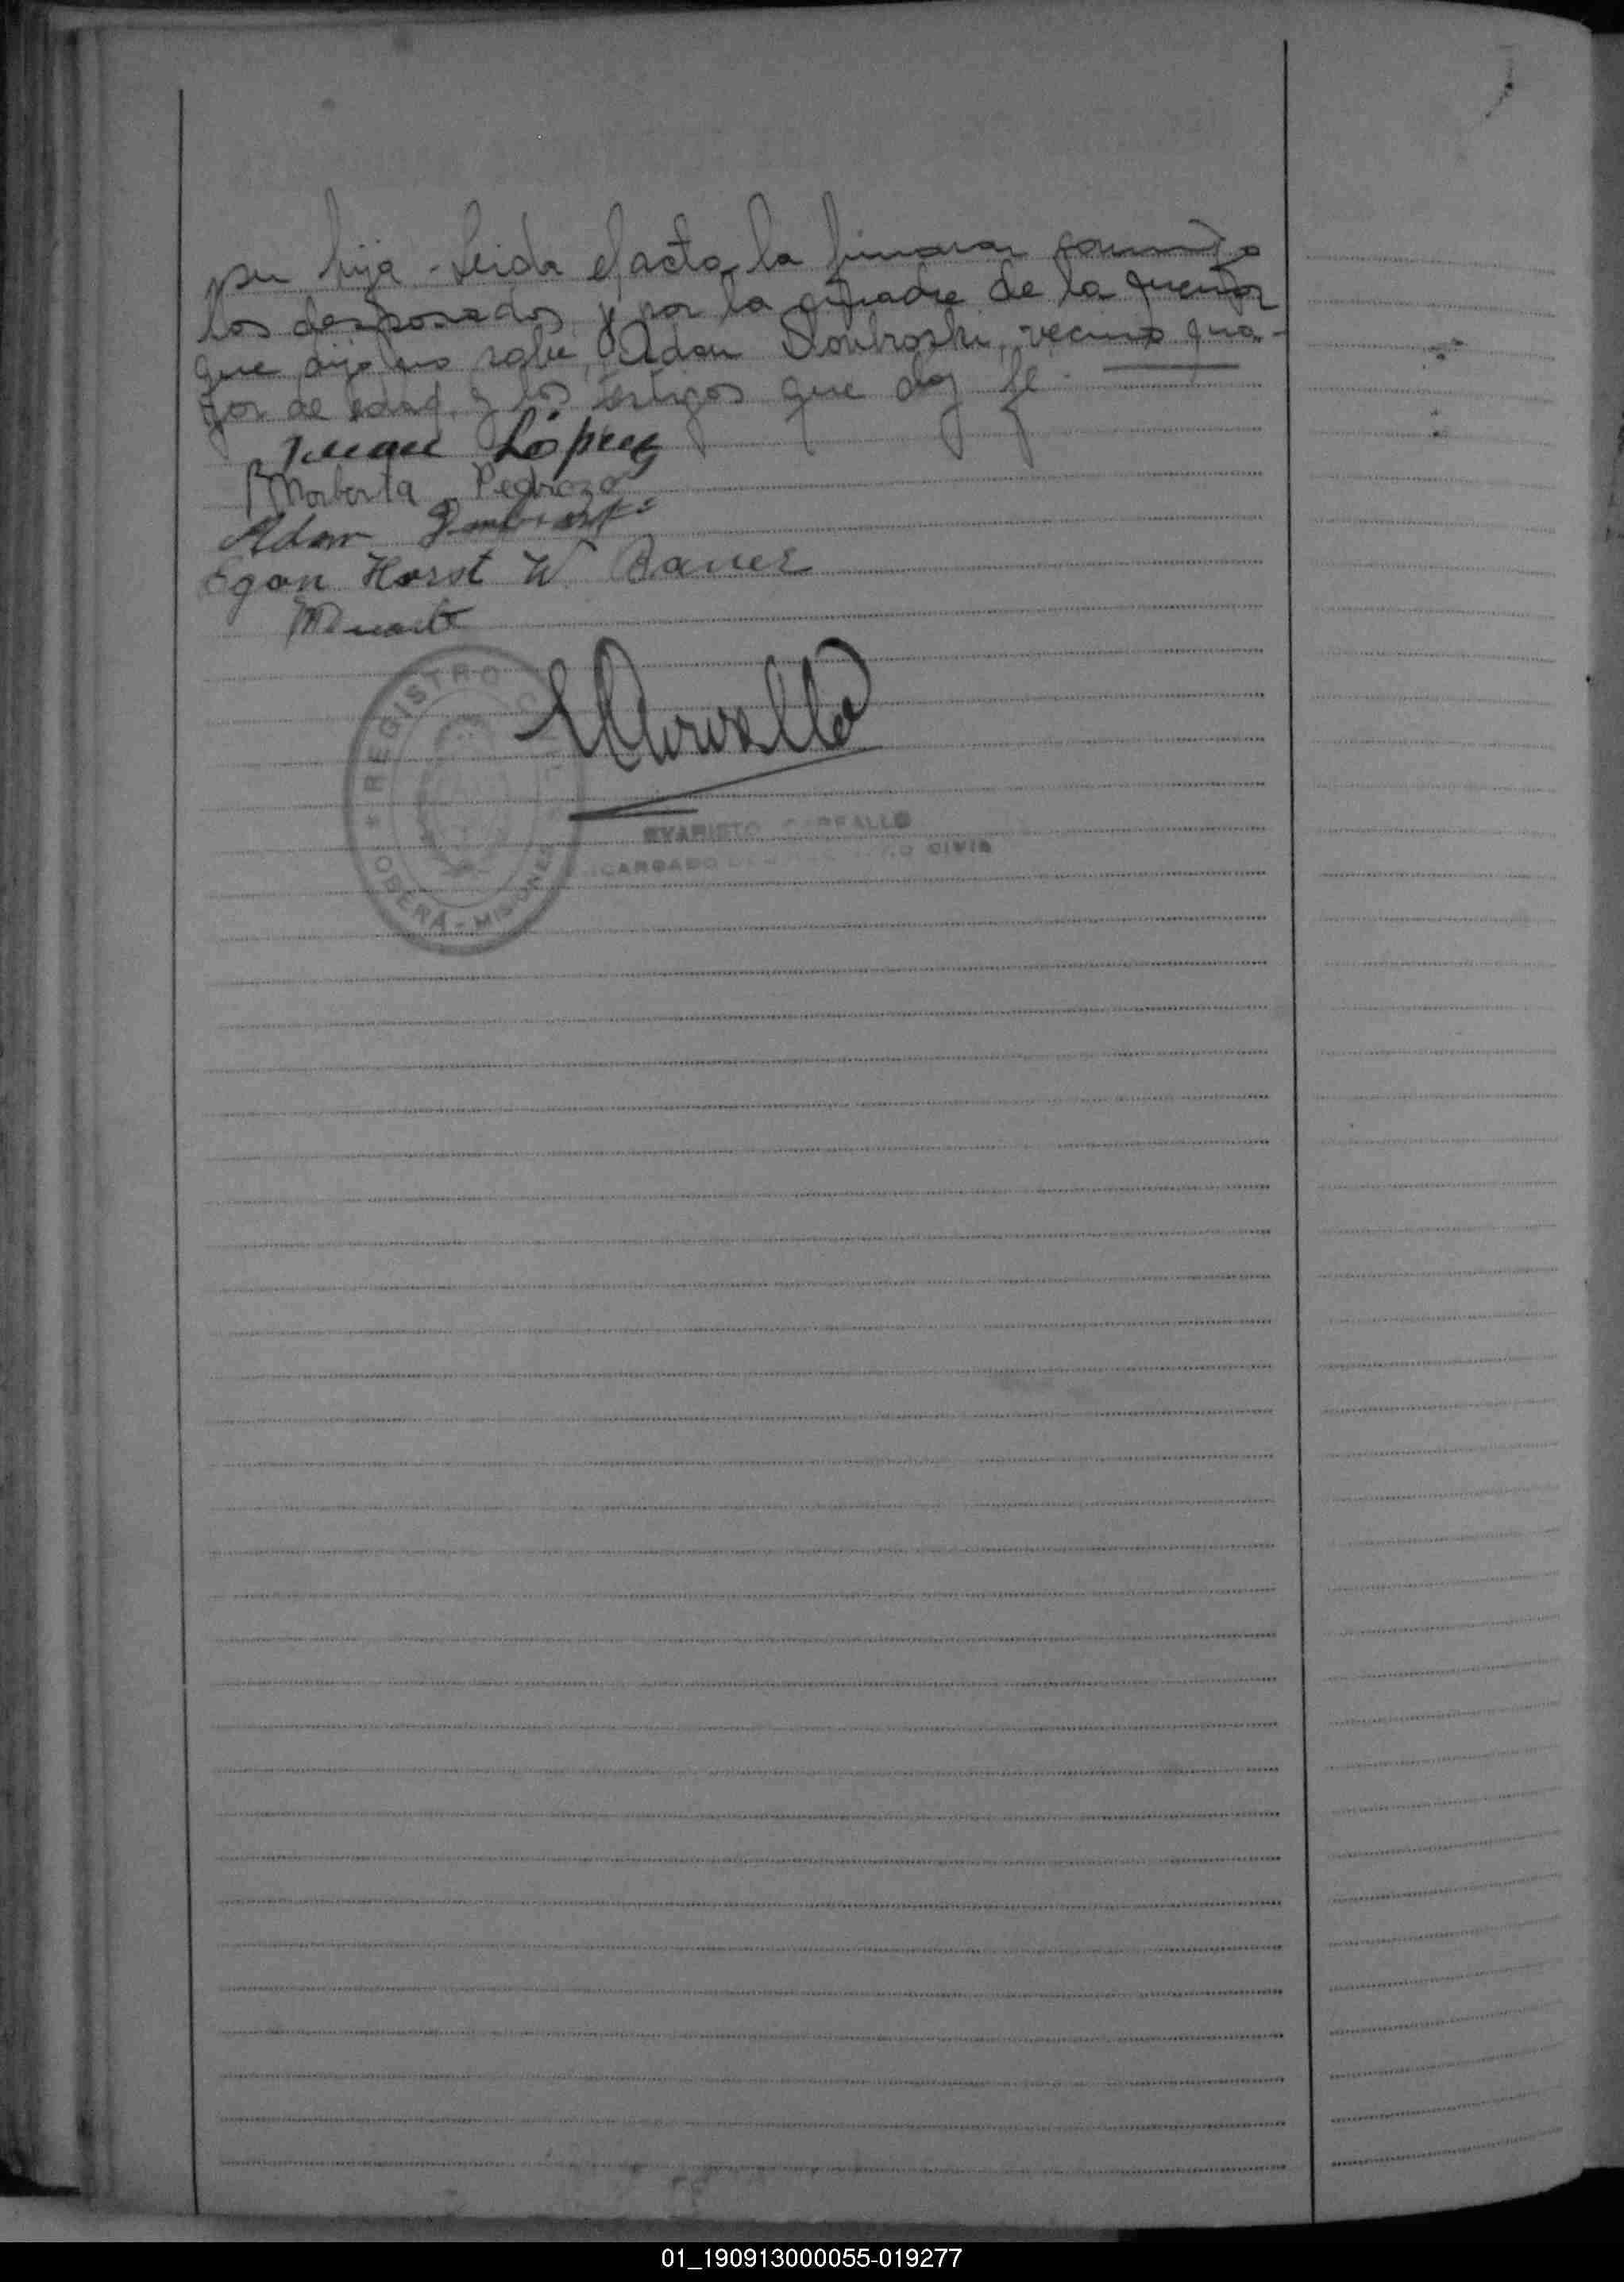 su hija - Leida el acta la firmaron conmigo
los desposados, y por la madre de la menor
que dijo no saber, Adan Dombroski, vecino, ma-
yor de edad, y los testigos que doy fe.
Juan López
Norberta Pedrozo
Adan
Egon Horst W Bauer
MDuarte
ECarvallo
REGISTRO CIVIL
OBERA - MISIONES
EVARISTO CARVALLO
ENCARGADO DEL REGISTRO CIVIL
01_190913000055-019277